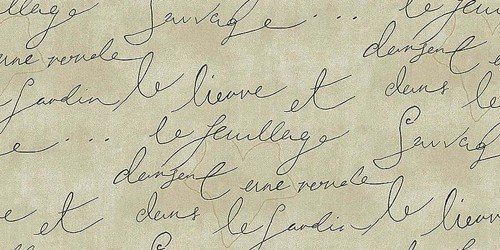 llage Sauvage ... le feu
dansent e
une ronde le lievre et dans le
Jardin
e ... le feuillage Sauvag
dansent une ronde
e et dans le Jardin le lievre
llage